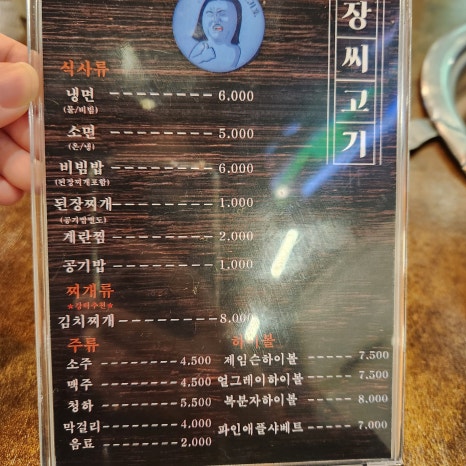 장씨고기
식사류
냉면 6.000
(물/비빔)
소면 5.000
(온/냉)
비빔밥 6.000
(된장찌개포함)
된장찌개 1.000
(공기밥별도)
계란찜 2.000
공기밥 1.000
찌개류
★강력추천★
김치찌개 8.000
주류
소주 4.500
맥주 4.500
청하 5.500
막걸리 4.000
음료 2.000
하이볼
제임슨하이볼 7.500
얼그레이하이볼 7.500
복분자하이볼 8.000
파인애플샤베트 7.000